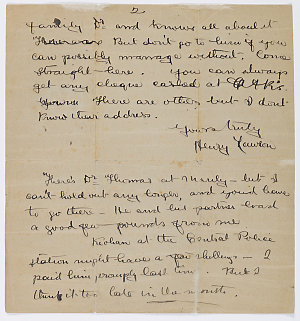 2
family Dr. and knows all about it
But don't go to him if you
can possibly manage without. Come
straight here. You can always
get any cheque cashed at
There are others but I don't
know their address.
Yours truly
Henry Lawson
There's Dr Thomas at Manly – but I
can't hold out any longer, and you'd have
to go there – He and his partner cost
a good few pounds from me
at the Central Police
station might have a few shillings – I
paid him promptly last time – But I
think it too late in the month.